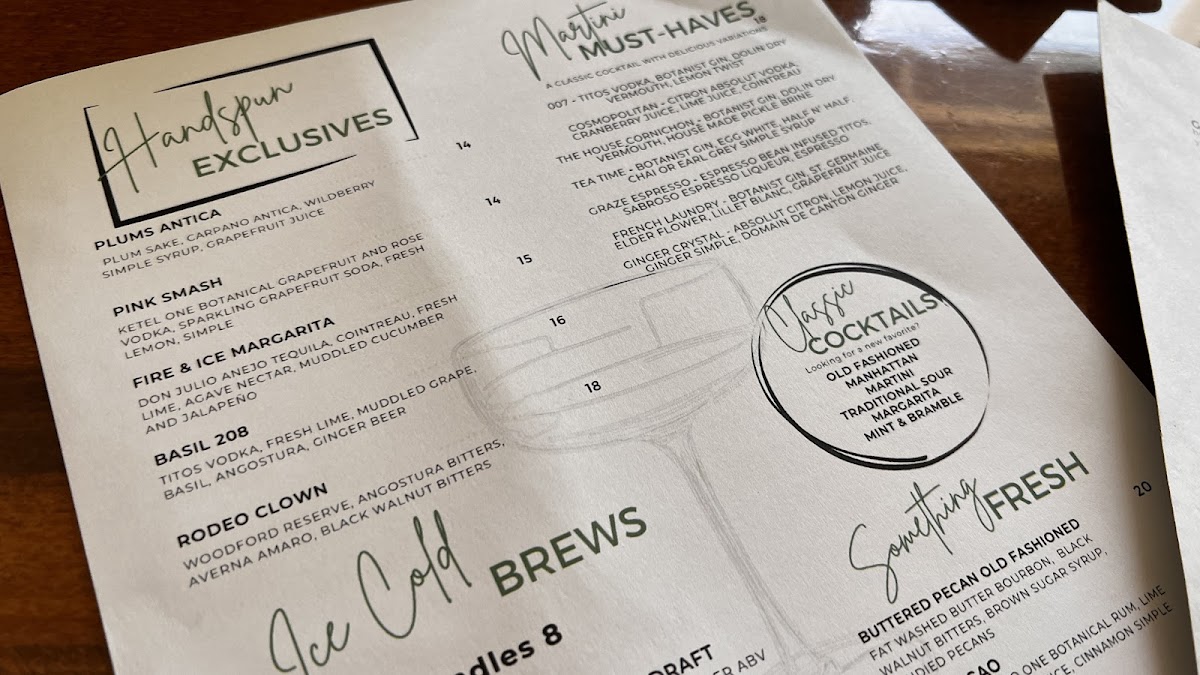 Handspun
EXCLUSIVES
PLUMS ANTICA
14
PLUM SAKE, CARPANO ANTICA, WILDBERRY
SIMPLE SYRUP, GRAPEFRUIT JUICE
PINK SMASH
14
KETEL ONE BOTANICAL GRAPEFRUIT AND ROSE
VODKA, SPARKLING GRAPEFRUIT SODA, FRESH
LEMON, SIMPLE
FIRE & ICE MARGARITA
15
DON JULIO ANEJO TEQUILA, COINTREAU, FRESH
LIME, AGAVE NECTAR, MUDDLED CUCUMBER
AND JALAPEÑO
BASIL 208
16
TITOS VODKA, FRESH LIME, MUDDLED GRAPE,
BASIL, ANGOSTURA, GINGER BEER
RODEO CLOWN
18
WOODFORD RESERVE, ANGOSTURA BITTERS,
AVERNA AMARO, BLACK WALNUT BITTERS
Ice Cold
BREWS
dles 8
DRAFT
ER ABV
Martini
MUST-HAVES
18
A CLASSIC COCKTAIL WITH DELICIOUS VARIATIONS
007 - TITOS VODKA, BOTANIST GIN, DOLIN DRY
VERMOUTH, LEMON TWIST
COSMOPOLITAN - CITRON ABSOLUT VODKA,
CRANBERRY JUICE, LIME JUICE, COINTREAU
THE HOUSE CORNICHON - BOTANIST GIN, DOLIN DRY
VERMOUTH, HOUSE MADE PICKLE BRINE
TEA TIME - BOTANIST GIN, EGG WHITE, HALF N' HALF,
CHAI OR EARL GREY SIMPLE SYRUP
GRAZE ESPRESSO - ESPRESSO BEAN INFUSED TITOS,
SABROSO ESPRESSO LIQUEUR, ESPRESSO
FRENCH LAUNDRY - BOTANIST GIN, ST. GERMAINE
ELDER FLOWER, LILLET BLANC, GRAPEFRUIT JUICE
GINGER CRYSTAL - ABSOLUT CITRON, LEMON JUICE,
GINGER SIMPLE, DOMAIN DE CANTON GINGER
Classic
COCKTAILS
Looking for a new favorite?
OLD FASHIONED
MANHATTAN
MARTINI
TRADITIONAL SOUR
MARGARITA
MINT & BRAMBLE
Something
FRESH
BUTTERED PECAN OLD FASHIONED
20
FAT WASHED BUTTER BOURBON, BLACK
WALNUT BITTERS, BROWN SUGAR SYRUP,
DIED PECANS
CAO
O ONE BOTANICAL RUM, LIME
CE, CINNAMON SIMPLE